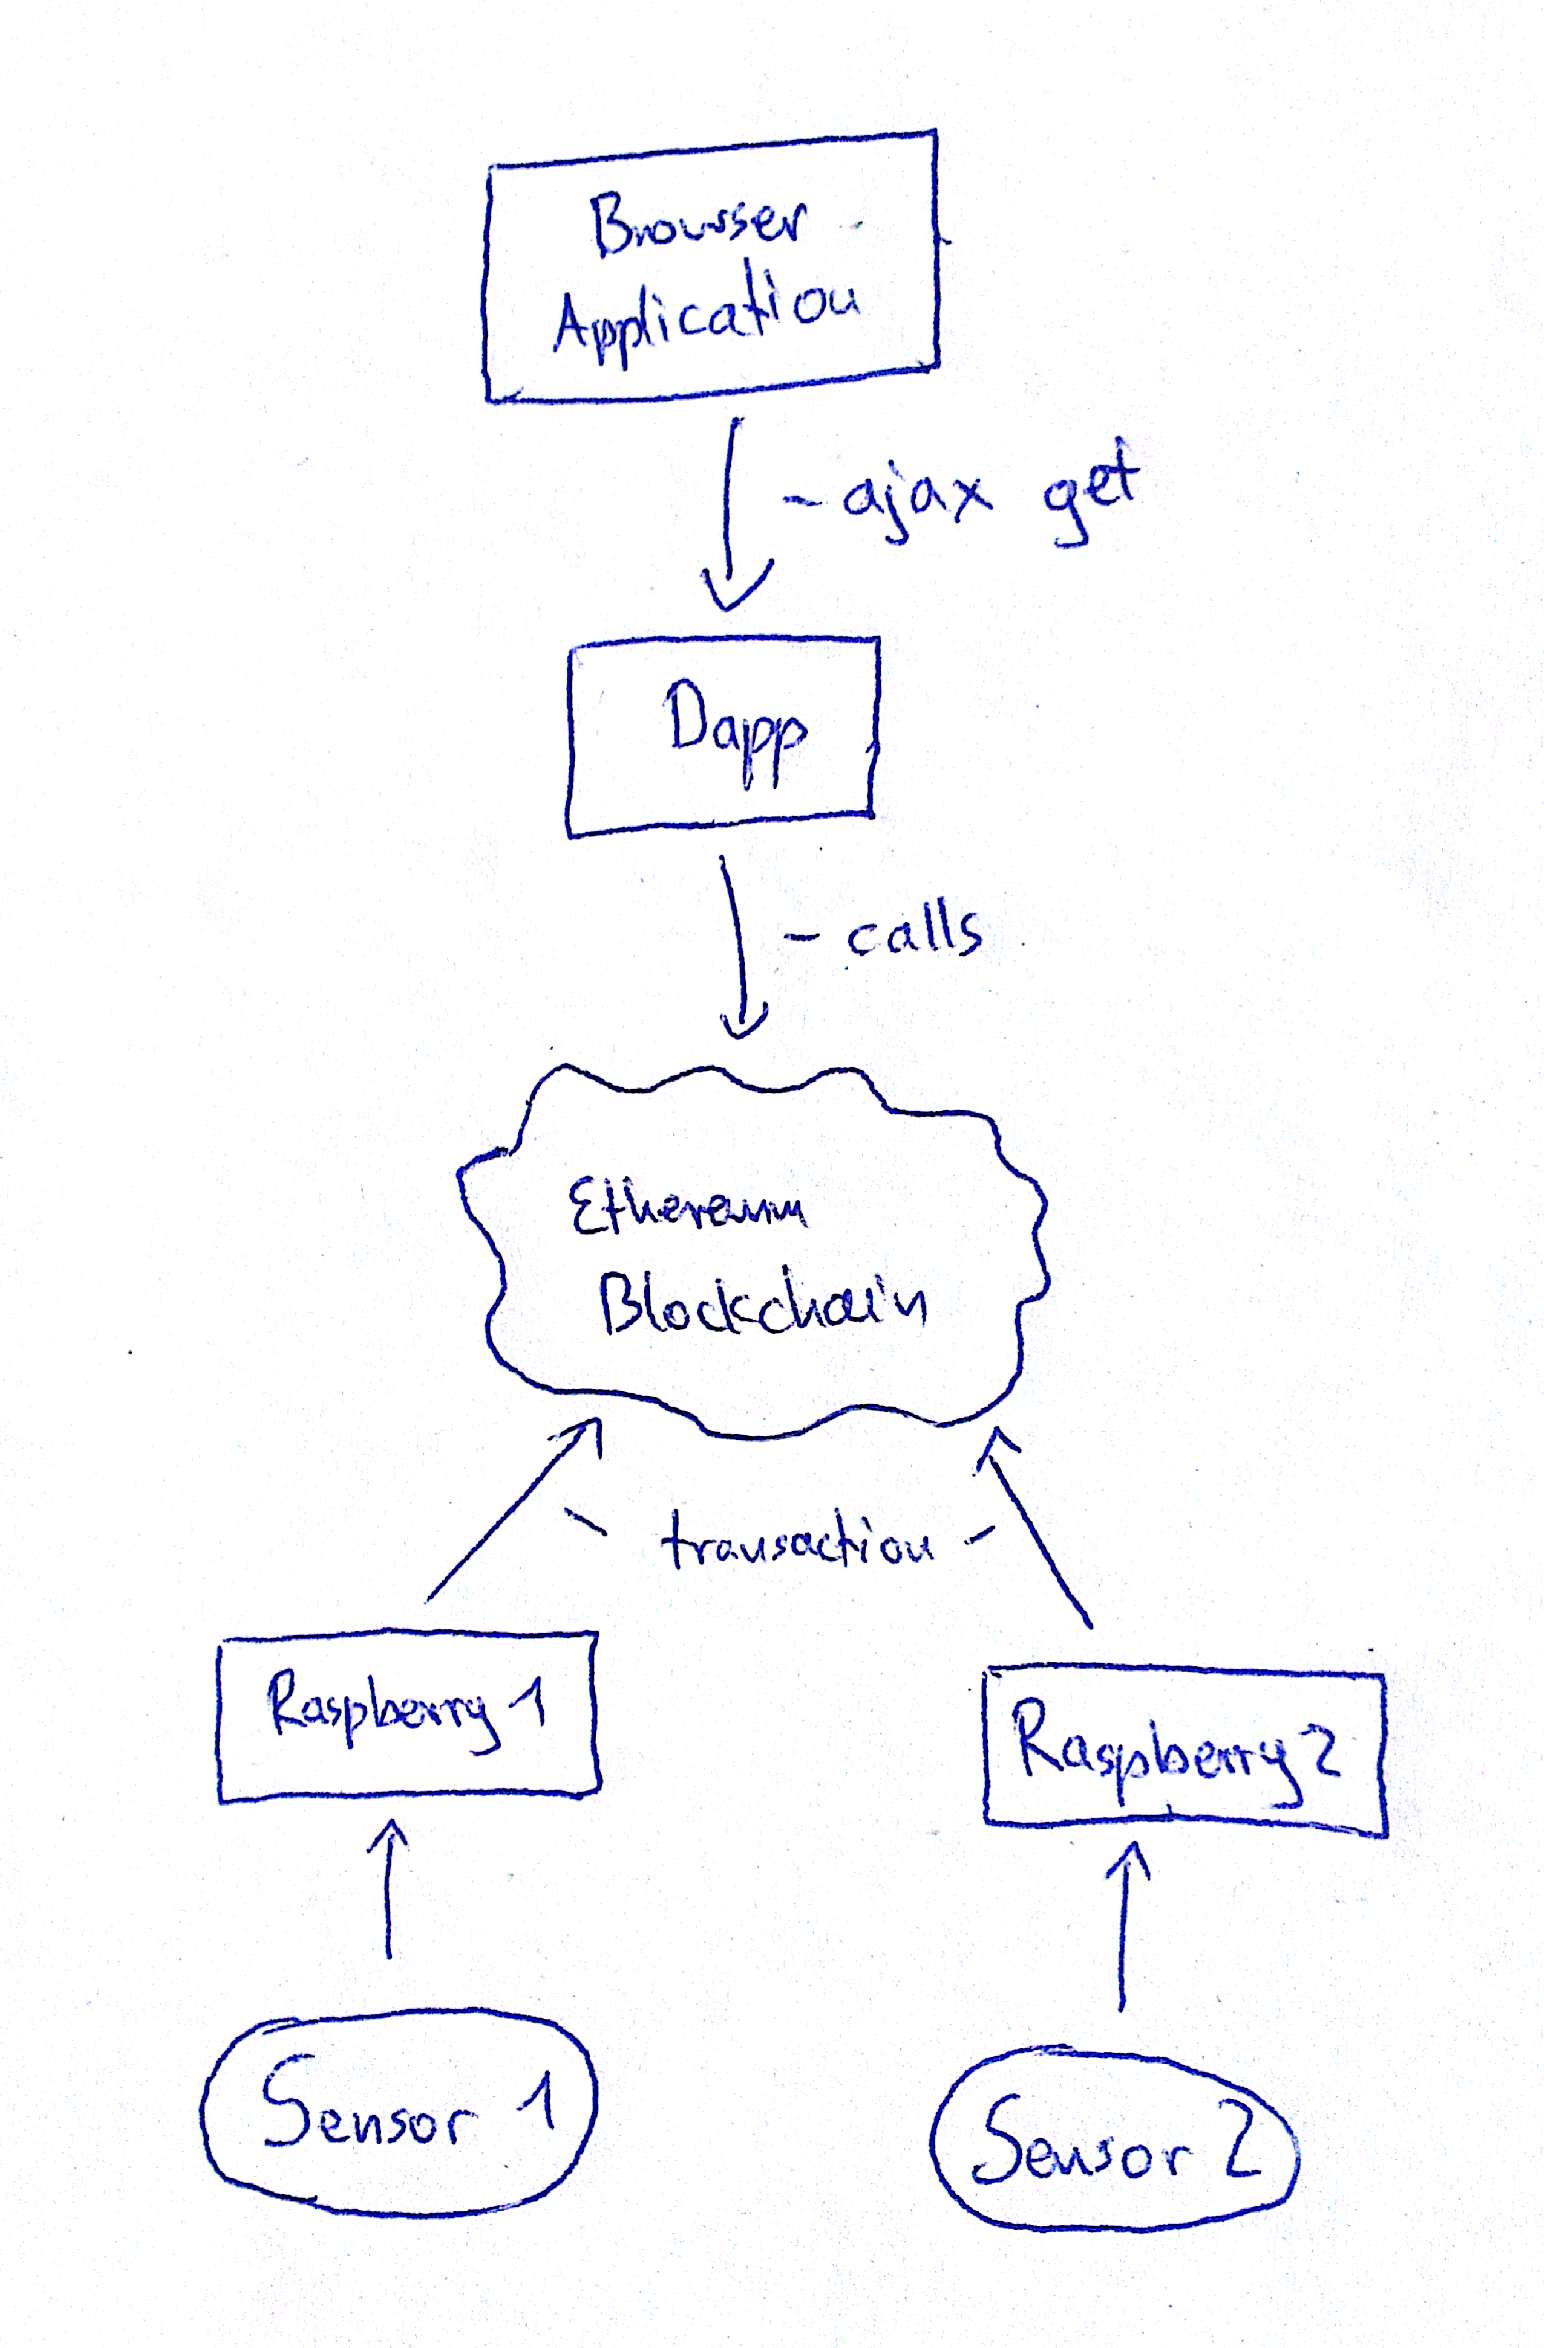 Browser
Application
- ajax get
Dapp
- calls
Ethereum
Blockchain
- transaction -
Raspberry 1
Raspberry 2
Sensor 1
Sensor 2